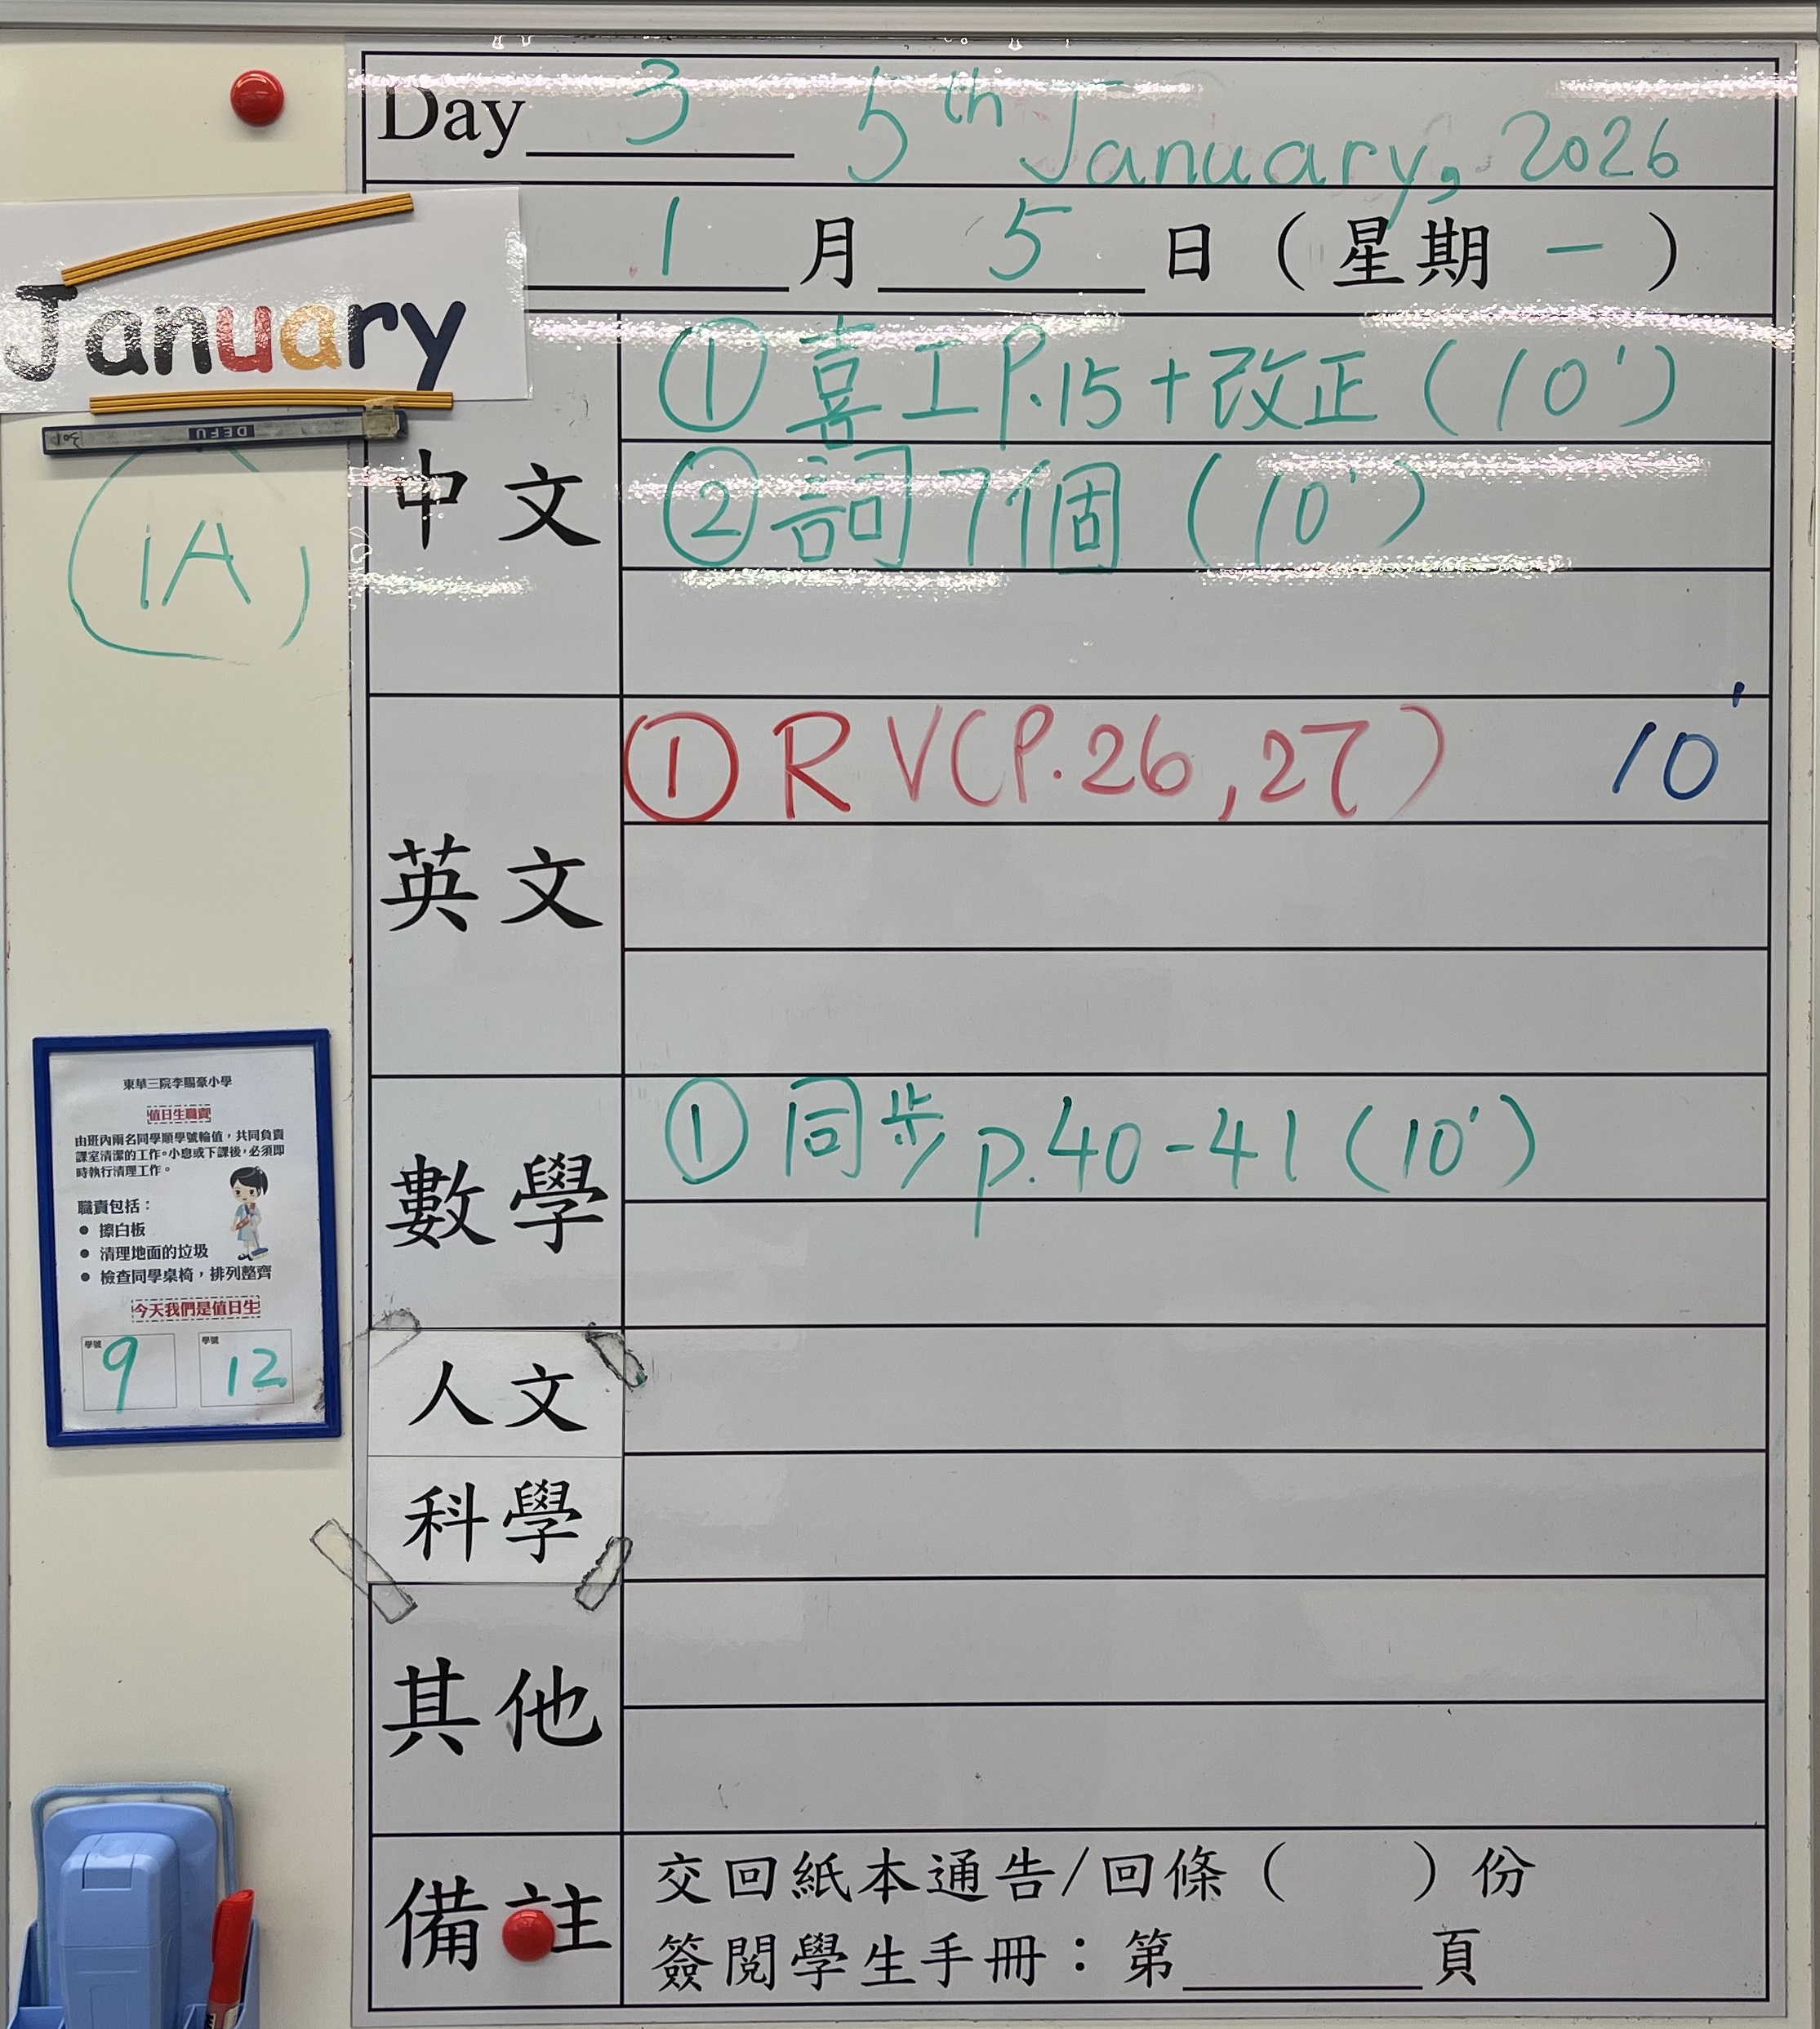 Day 3 5th January, 2026
1月5日（星期一）
January
DEFU
1A
中文
① 喜工P.15+改正(10')
② 詞7個(10')
英文
① RV(P.26,27) 10'
數學
① 同步p.40-41(10')
人文
科學
其他
備註
交回紙本通告/回條（ ）份
簽閱學生手冊：第______頁
東華三院李賜豪小學
值日生職責
由班內兩名同學順學號輪值，共同負責
課室清潔的工作。小息或下課後，必須即
時執行清理工作。
職責包括：
● 擦白板
● 清理地面的垃圾
● 檢查同學桌椅，排列整齊
今天我們是值日生
學號 9 學號 12